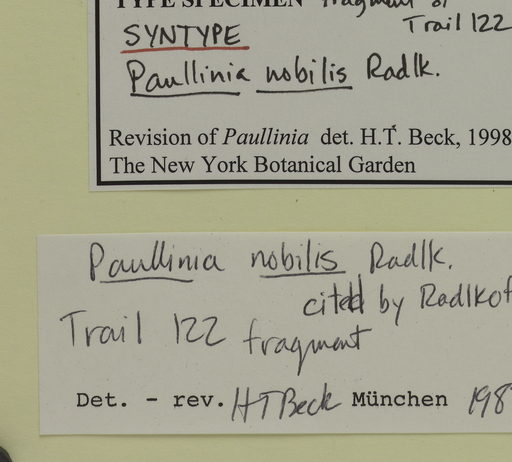 TYPE SPECIMEN fragment of
Trail 122
SYNTYPE
Paullinia nobilis Radlk.
Revision of Paullinia det. H.T. Beck, 1998
The New York Botanical Garden
Paullinia nobilis Radlk.
cited by Radlkof
Trail 122 fragment
Det. - rev. HTBeck München 198